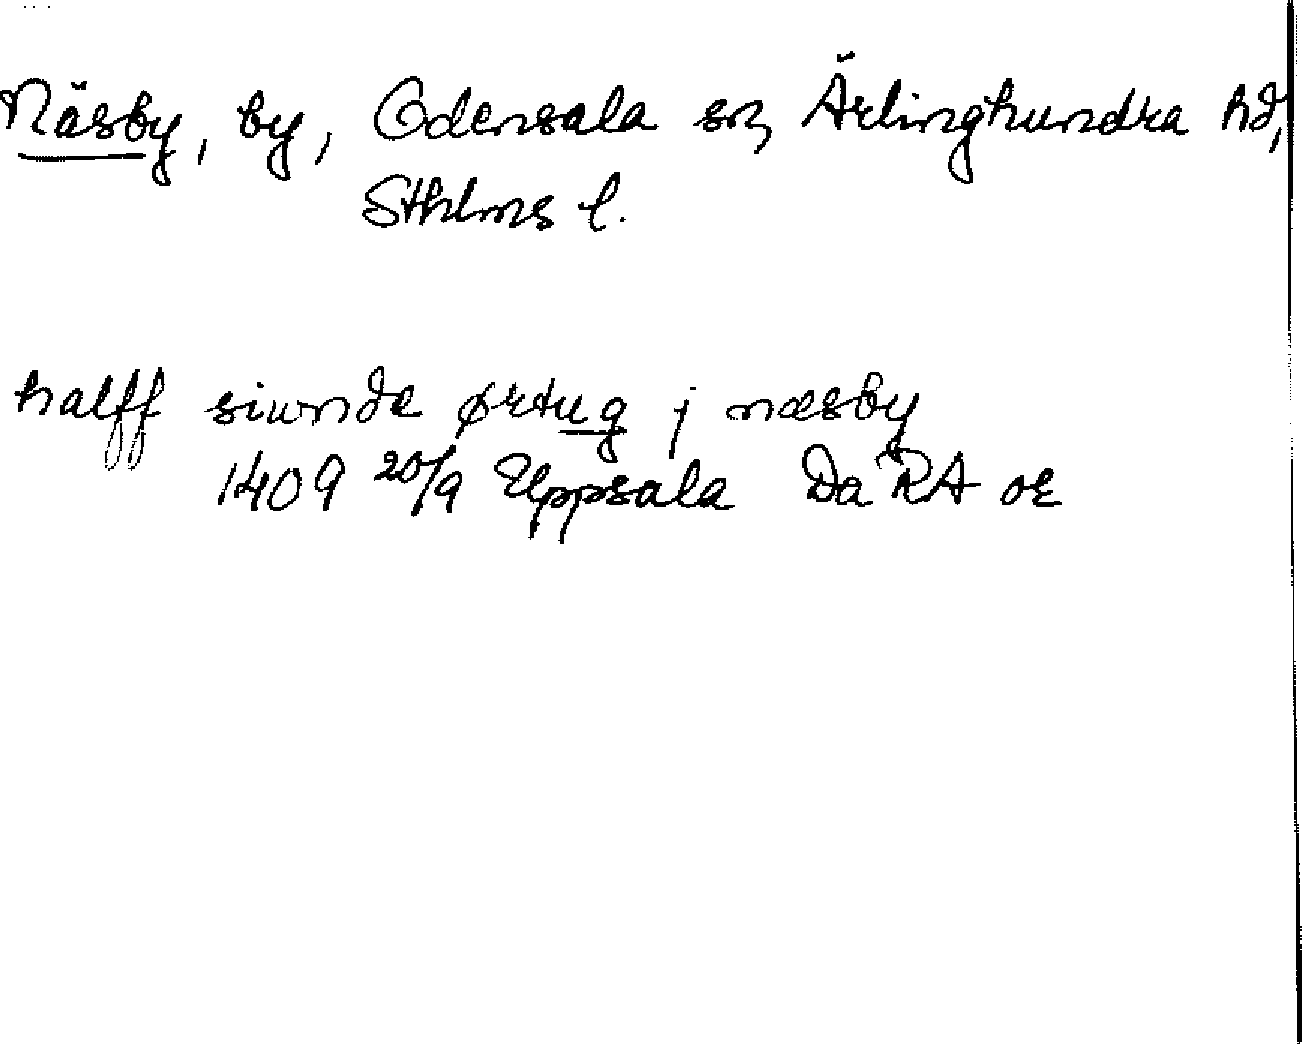 Näsby, by, Odensala sn, Ärlinghundra hd,
Sthlms l.
halff siunde ørtug j næsby
1409 20/9 Uppsala Da RA or